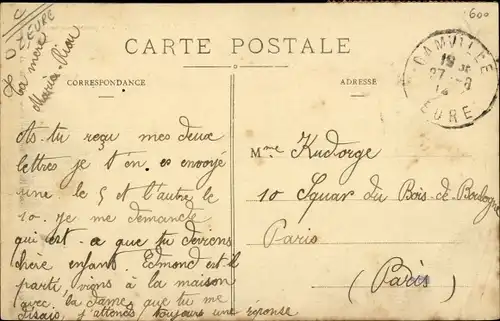 600
27 EURE
Ta mère
Maria Riou
CARTE POSTALE
CORRESPONDANCE
ADRESSE
DAMVILLE
19
27 - 8
14
EURE
As-tu reçu mes deux
lettres je t'en es envoyé
une le 5 et l'autre le
10. je me demande
qui est-a que tu devrens
chère enfant Edmond est-il
parti, viens à la maison
avec la dame que tu me
disais, j'attends toujours une réponse
Mme Kudorge
10 Squar du Bois-de-Boulogne
Paris
(Paris)